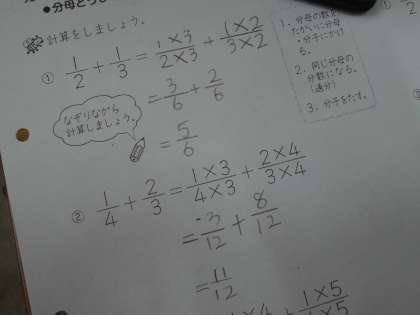 ●分母どうし
計算をしましょう。
① 1/2 + 1/3 = 1×3/2×3 + 1×2/3×2
= 3/6 + 2/6
= 5/6
なぞりながら
計算しましょう。
1. 分母の数を
たがいに分母
・分子にかけ
る。
2. 同じ分母の
分数になる。
(通分)
3. 分子をたす。
② 1/4 + 2/3 = 1×3/4×3 + 2×4/3×4
= 3/12 + 8/12
= 11/12
1×5
①
2
③